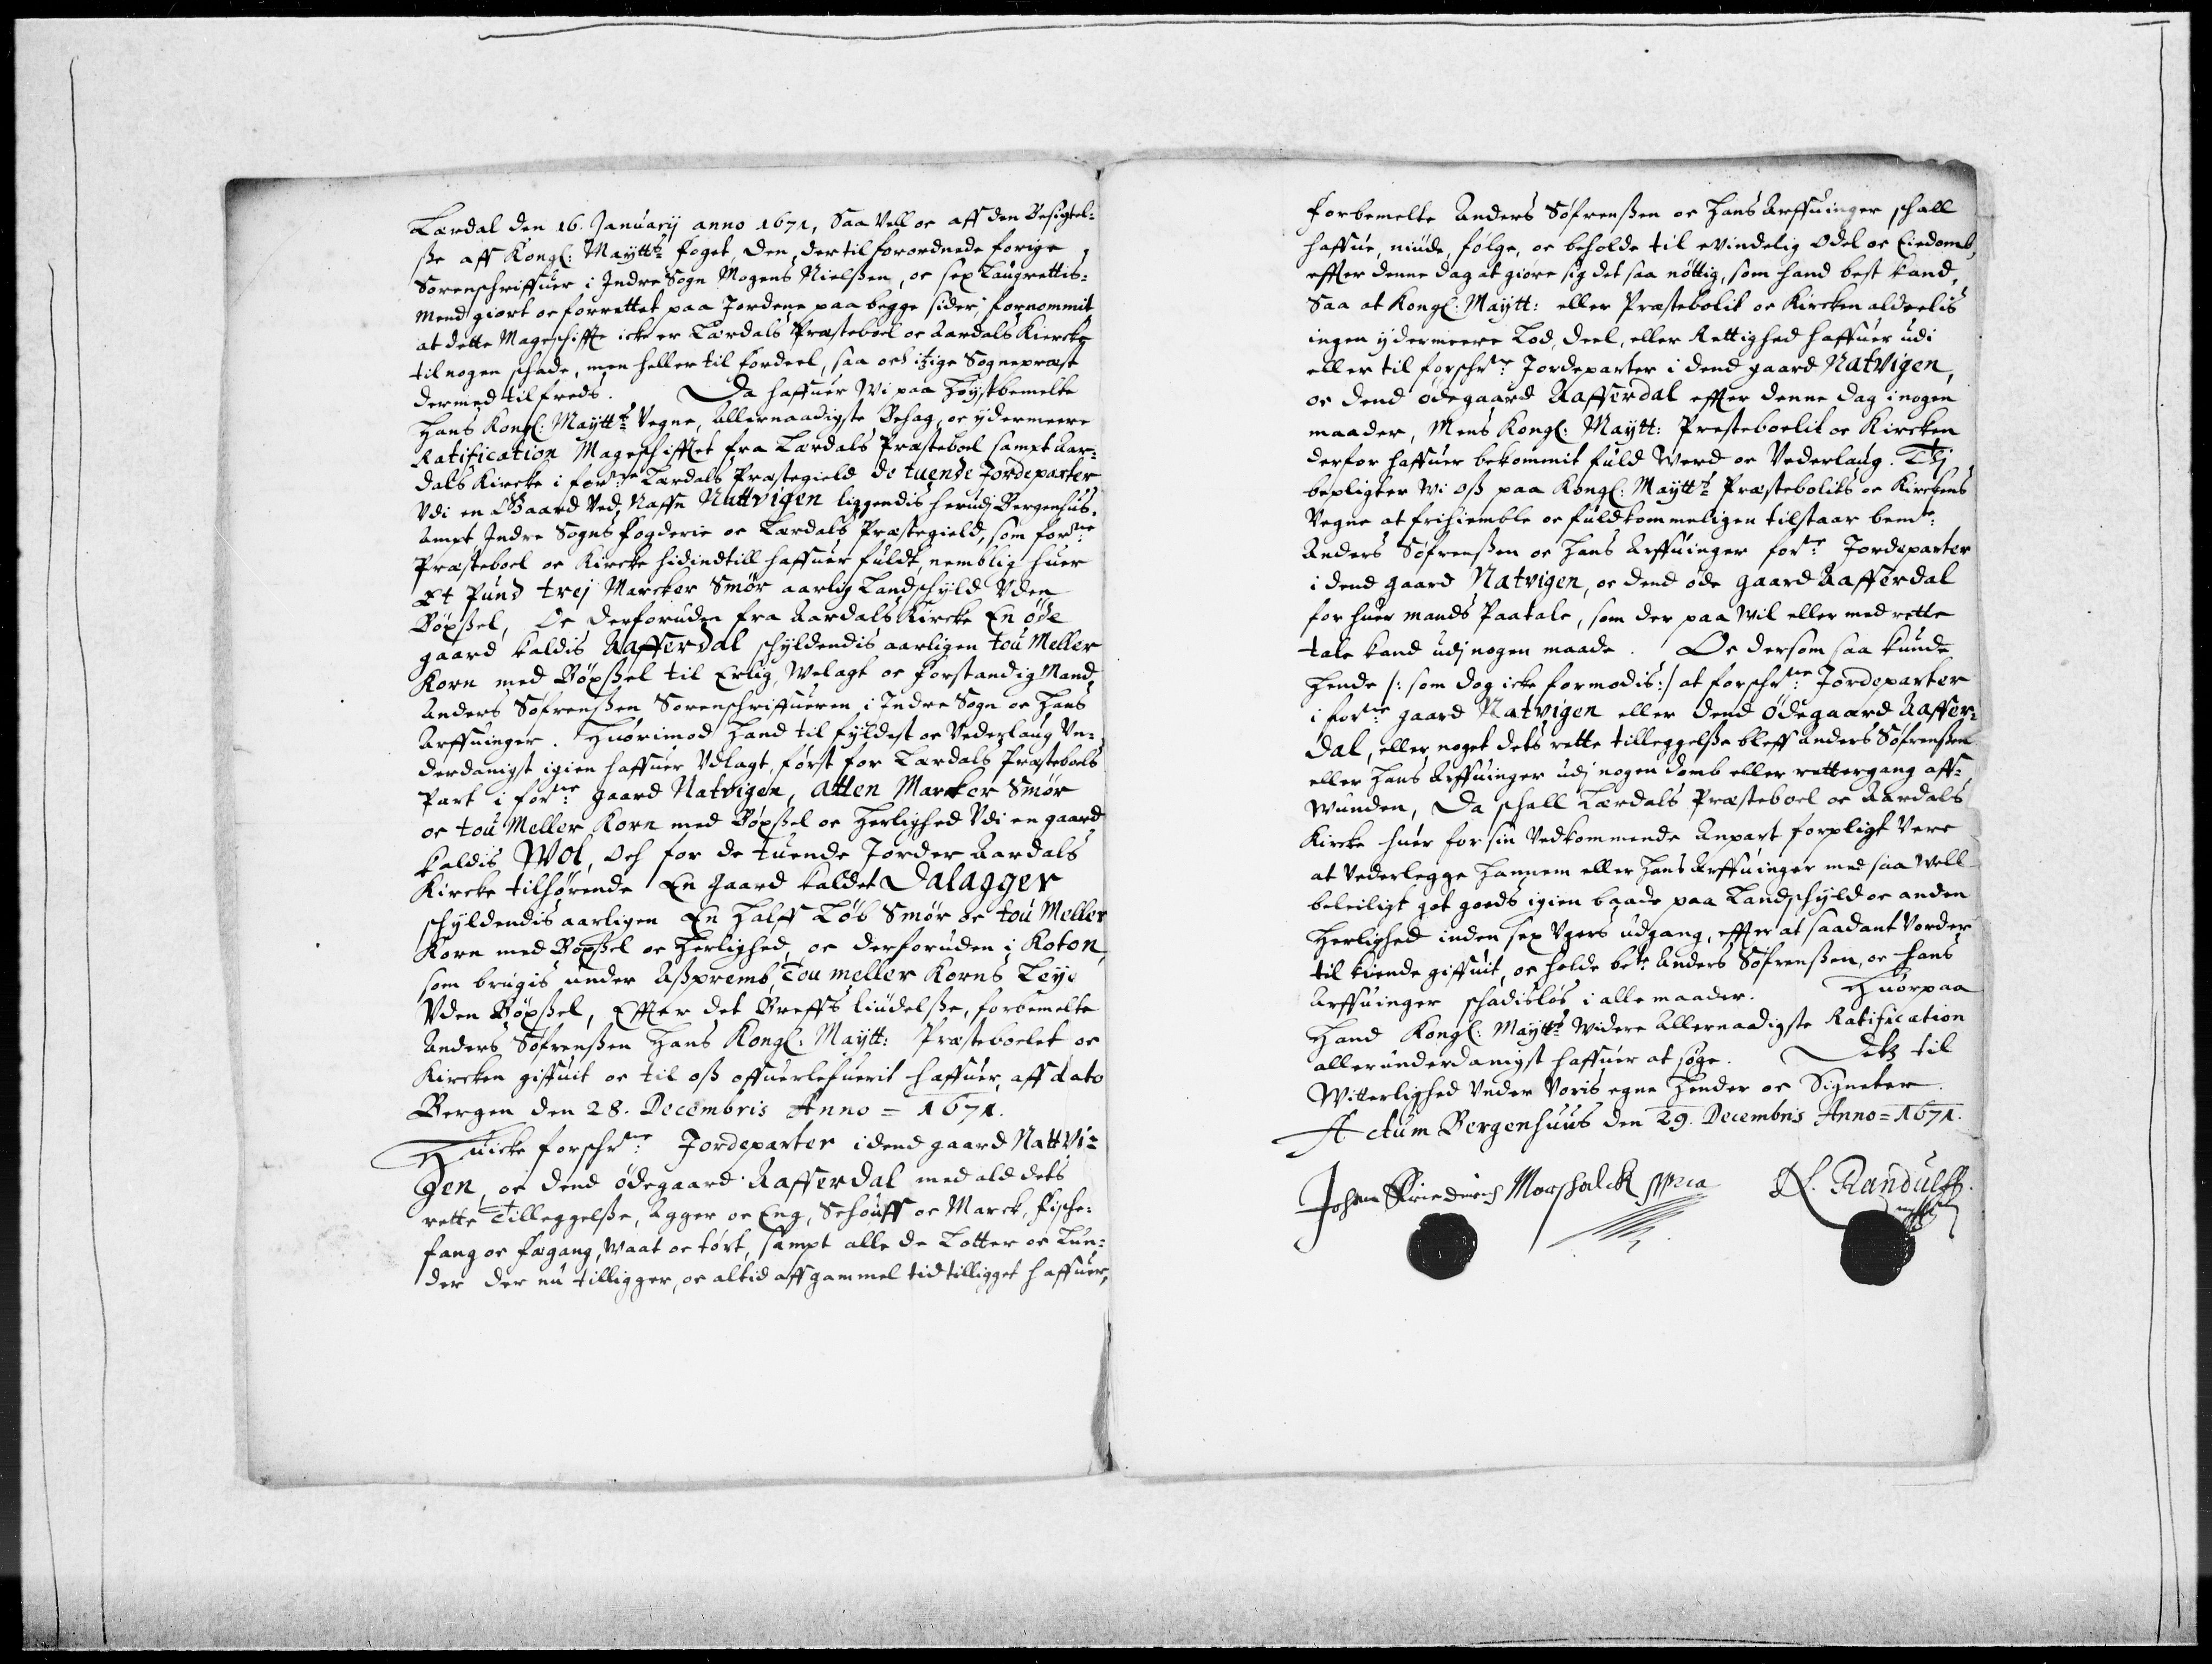 Lærdal den 16. Januarij anno 1671, Saa Vell oc aff den Besigtel-
ße aff Kongl: Maÿtts foget, den dertil forordnede forige
Sorenschriffuer i Indre Sogn Mogens Nielßen, oc sex Laugrettis-
Mend giort oc forrettet paa Jordene paa begge sider, fornommit
at dette Mageschiffte icke er Lærdals Præsteboel oc Aardals Kiercke
til nogen schade, men heller til fordeel, saa och itzige Sognepræst
dermed tilfreds. Da haffuer Wi paa Høÿstbemelte
Hans Kongl: Maÿtts Vegne, Allernaadigste Behag, oc ÿdermeere
Ratification Mageschifftet fra Lærdals Præsteboel sampt Aar-
dals Kircke i forne Lærdals Præstegield de tuende Jordeparter
Vdi en Gaard Ved Naffn Nattvigen liggendis herudj Bergenhus-
Ampt, Indre Sogns fogderie oc Lærdals Præstegield, som forne
Præsteboel oc Kircke hidindtill haffuer fuldt, nemblig huer
Et Pund trej Marcker Smør aarlig Landschÿld Vden
Bøxßel, Oc derforuden fra Aardals Kircke En øde
gaard kaldis Aafferdal schÿldendis aarligen tou Meller
Korn med Bøxßel til Erlig, Welagt oc forstandig Mand,
Anders Søfrenßen Sorenschriffueren i Indre Sogn oc Hans
Arffuinger. Huorimod Hand til fÿldest oc Vederlaug Vn-
derdanigst igien haffuer Vdlagt, først for Lærdals Præsteboels
Part i forne gaard Natvigen, Atten Marcker Smør
oc tou Meller Korn med Bøxßel oc Herlighed Vdi en gaard
kaldis Wol, Och for de tuende Jorder Aardals
Kircke tilhørende En Gaard kaldet Dalagger
schÿldendis aarligen En Halff Løb Smør oc tou Meller
Korn med Bøxßel oc Herlighed, oc derforuden i Koton,
som brugis under Aßpremb, Tou meller Korns Leÿe
Vden Bøxßel, Effter det Breffs liudelße, forbemelte
Anders Søfrenßen Hans Kongl: Maÿtt: Præsteboelet oc
Kircken giffuit oc til oß offuerlefuerit haffuer, aff dato
Bergen den 28. Decembris Anno = 1671.
Huicke forschrne Jordeparter i dend gaard Nattvi-
gen, oc dend ødegaard Aafferdal med ald dets
rette Tilleggelße, Agger oc Eng, Schouff oc Marck, fische-
fang oc fægang, Waat oc tørt, sampt alle de Lotter oc Lun-
der der nu tilligger, oc altid aff gammel tid tilligget haffuer,
forbemelte Anders Søfrenßen oc Hans Arffuinger schall
haffue, niude, følge, oc beholde til evindelig Odel oc Eiedomb,
effter denne dag at giøre sig det saa nøttig, som hand best kand,
Saa at Kongl: Maÿtt: eller Præstebolit oc Kircken aldeelis
ingen ÿdermeere Lod, deel, eller Rettighed haffuer udi
eller til forschrne Jordeparter i dend gaard Natvigen,
oc dend ødegaard Aafferdal effter denne dag i nogen
maader, Mens Kongl: Maÿtt: Presteboelit oc Kircken
derfor haffuer bekommit fuld Werd oc Vederlaug. Thj
bepligter Wi oß paa Kongl: Maÿtts Præstebolits oc Kirckens
Vegne at frihiemble oc fuldkommeligen tilstaar bemte
Anders Søfrenßen oc Hans Arffuinger forne Jordeparter
i dend gaard Natvigen, oc dend øde gaard Aafferdal
for huer mands Paatale, som der paa Wil eller med rette
tale kand udj nogen maade. Oc dersom saa kunde
Hende /: som dog icke formodis :/ at forschrne Jordeparter
i forne gaard Natvigen eller dend Ødegaard Aaffer-
dal, eller noget dets rette tilleggelße bleff Anders Søfrenßen
eller Hans Arffuinger udj nogen domb eller rettergang aff-
Wunden, Da schall Lærdals Præsteboel oc Aardals
Kircke huer for sin Vedkommende Anpart forpligt Vere
at Vederlegge Hannem eller Hans Arffuinger med saa Well
beleiligt got goeds igien baade paa Landschÿld oc anden
Herlighed inden sex Vgers udgang, effter at saadant Vorder
til kiende giffuit, oc holde bete Anders Søfrenßen, oc Hans
Arffuinger schadisløs i alle maader. Huorpaa
Hand Kongl: Maÿtts Widere Allernaadigste Ratification
allerunderdanigst haffuer at søge. Dets til
Witterlighed Vnder Voris egne Hender oc Signeter.
Actum Bergenhuus den 29. Decembris Anno = 1671.
Johan Friederich Marschalck mpria N. Randulff